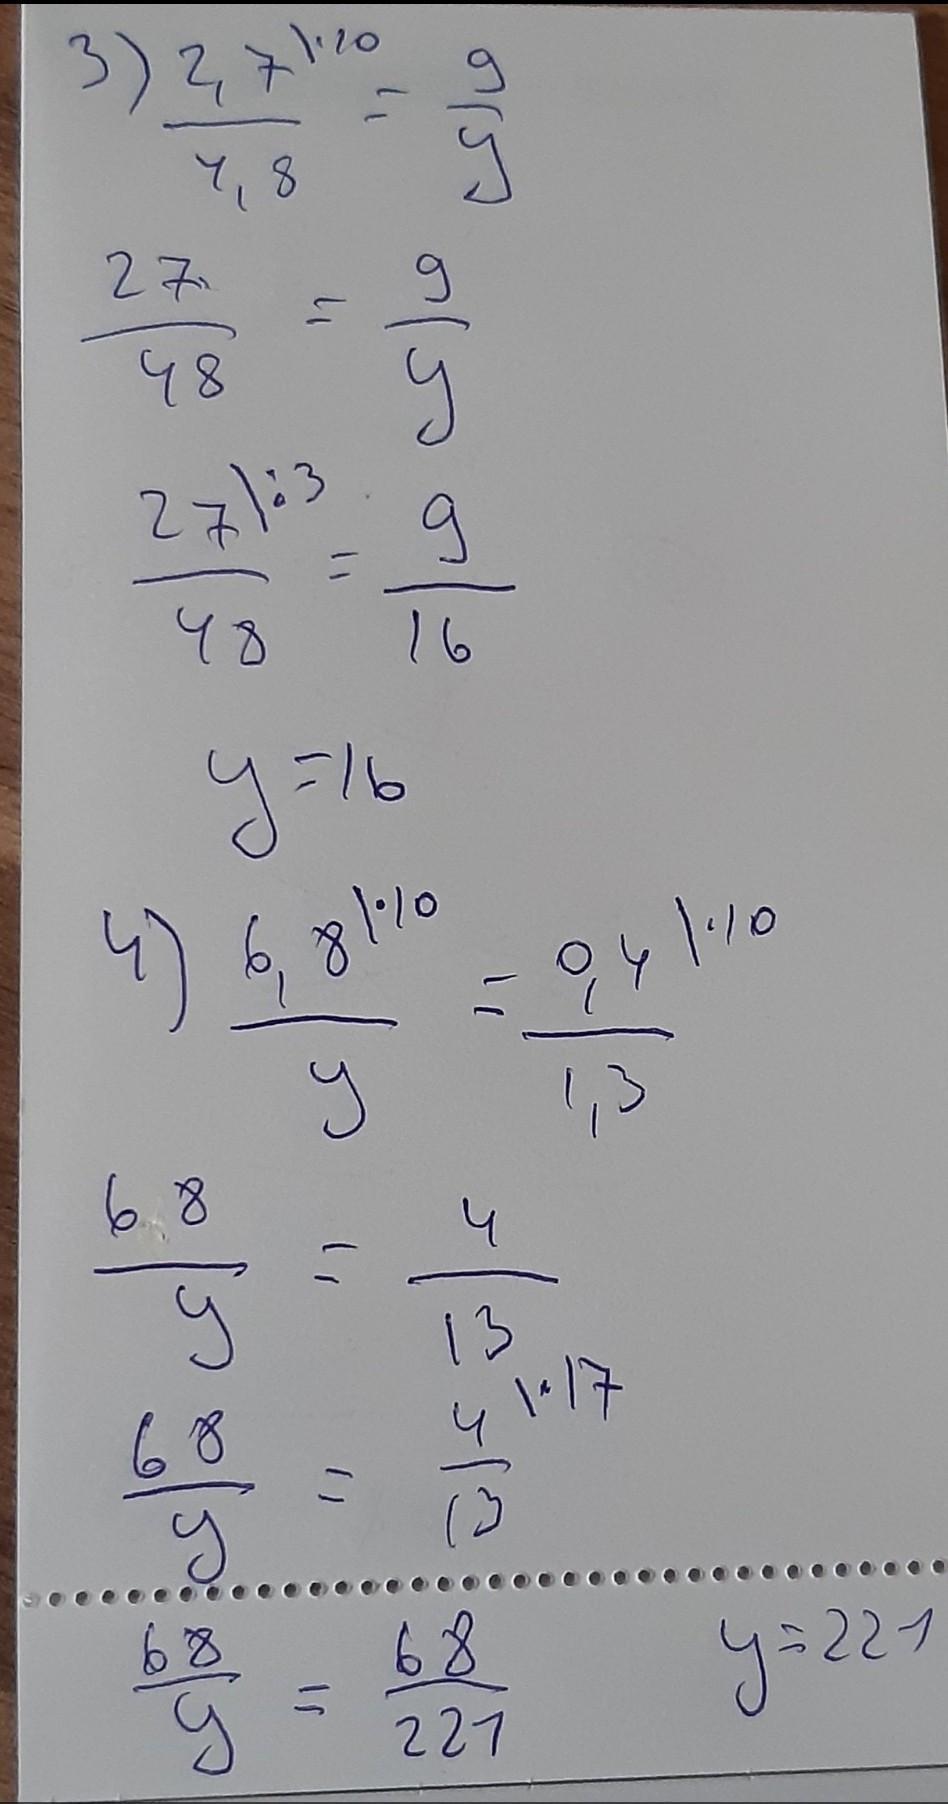 3) 2,7\·10 / 4,8 = 9 / y
27 / 48 = 9 / y
27\:3 / 48 = 9 / 16
y=16
4) 6,8\·10 / y = 0,4\·10 / 1,3
68 / y = 4 / 13
68 / y = 4\·17 / 13
68 / y = 68 / 221 y=221